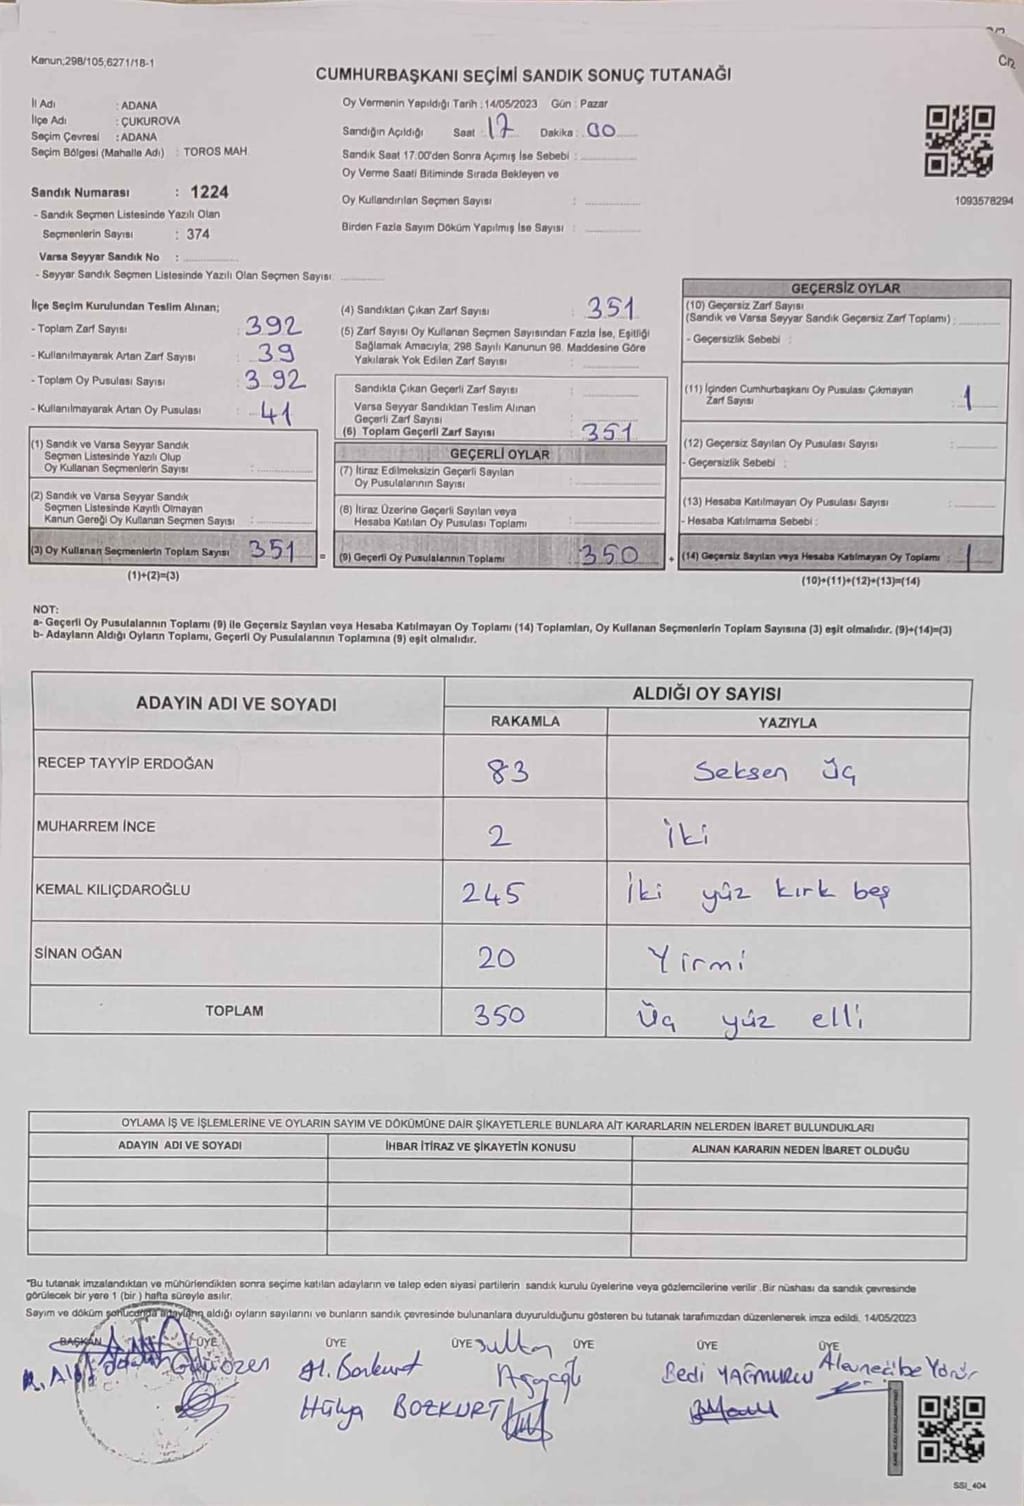 Kanun;298/105,6271/18-1
CUMHURBAŞKANI SEÇİMİ SANDIK SONUÇ TUTANAĞI
İl Adı : ADANA
İlçe Adı : ÇUKUROVA
Seçim Çevresi : ADANA
Seçim Bölgesi (Mahalle Adı) : TOROS MAH.
Oy Vermenin Yapıldığı Tarih : 14/05/2023 Gün : Pazar
Sandığın Açıldığı Saat : 17 Dakika : 00
Sandık Saat 17:00'den Sonra Açımış İse Sebebi :
Oy Verme Saati Bitiminde Sırada Bekleyen ve
Oy Kullandırılan Seçmen Sayısı :
Birden Fazla Sayım Döküm Yapılmış İse Sayısı :
1093578294
Sandık Numarası : 1224
- Sandık Seçmen Listesinde Yazılı Olan
Seçmenlerin Sayısı : 374
Varsa Seyyar Sandık No :
- Seyyar Sandık Seçmen Listesinde Yazılı Olan Seçmen Sayısı:
İlçe Seçim Kurulundan Teslim Alınan;
- Toplam Zarf Sayısı : 392
- Kullanılmayarak Artan Zarf Sayısı : 39
- Toplam Oy Pusulası Sayısı : 392
- Kullanılmayarak Artan Oy Pusulası : 41
(1) Sandık ve Varsa Seyyar Sandık
Seçmen Listesinde Yazılı Olup
Oy Kullanan Seçmenlerin Sayısı :
(2) Sandık ve Varsa Seyyar Sandık
Seçmen Listesinde Kayıtlı Olmayan
Kanun Gereği Oy Kullanan Seçmen Sayısı :
(3) Oy Kullanan Seçmenlerin Toplam Sayısı 351 =
(1)+(2)=(3)
(4) Sandıktan Çıkan Zarf Sayısı : 351
(5) Zarf Sayısı Oy Kullanan Seçmen Sayısından Fazla İse, Eşitliği
Sağlamak Amacıyla, 298 Sayılı Kanunun 98. Maddesine Göre
Yakılarak Yok Edilen Zarf Sayısı :
Sandıkta Çıkan Geçerli Zarf Sayısı :
Varsa Seyyar Sandıktan Teslim Alınan
Geçerli Zarf Sayısı :
(6) Toplam Geçerli Zarf Sayısı 351
GEÇERLİ OYLAR
(7) İtiraz Edilmeksizin Geçerli Sayılan
Oy Pusulalarının Sayısı :
(8) İtiraz Üzerine Geçerli Sayılan veya
Hesaba Katılan Oy Pusulası Toplamı :
(9) Geçerli Oy Pusulalarının Toplamı : 350 +
GEÇERSİZ OYLAR
(10) Geçersiz Zarf Sayısı
(Sandık ve Varsa Seyyar Sandık Geçersiz Zarf Toplamı) :
- Geçersizlik Sebebi :
(11) İçinden Cumhurbaşkanı Oy Pusulası Çıkmayan
Zarf Sayısı : 1
(12) Geçersiz Sayılan Oy Pusulası Sayısı :
- Geçersizlik Sebebi :
(13) Hesaba Katılmayan Oy Pusulası Sayısı :
- Hesaba Katılmama Sebebi :
(14) Geçersiz Sayılan veya Hesaba Katılmayan Oy Toplamı : 1
(10)+(11)+(12)+(13)=(14)
NOT:
a- Geçerli Oy Pusulalarının Toplamı (9) ile Geçersiz Sayılan veya Hesaba Katılmayan Oy Toplamı (14) Toplamları, Oy Kullanan Seçmenlerin Toplam Sayısına (3) eşit olmalıdır. (9)+(14)=(3)
b- Adayların Aldığı Oyların Toplamı, Geçerli Oy Pusulalarının Toplamına (9) eşit olmalıdır.
ADAYIN ADI VE SOYADI
ALDIĞI OY SAYISI
RAKAMLA YAZIYLA
RECEP TAYYİP ERDOĞAN 83 Seksen Üç
MUHARREM İNCE 2 İki
KEMAL KILIÇDAROĞLU 245 İki yüz kırk beş
SİNAN OĞAN 20 Yirmi
TOPLAM 350 Üç yüz elli
OYLAMA İŞ VE İŞLEMLERİNE VE OYLARIN SAYIM VE DÖKÜMÜNE DAİR ŞİKAYETLERLE BUNLARA AİT KARARLARIN NELERDEN İBARET BULUNDUKLARI
ADAYIN ADI VE SOYADI İHBAR İTİRAZ VE ŞİKAYETİN KONUSU ALINAN KARARIN NEDEN İBARET OLDUĞU
*Bu tutanak imzalandıktan ve mühürlendikten sonra seçime katılan adayların ve talep eden siyasi partilerin sandık kurulu üyelerine veya gözlemcilerine verilir. Bir nüshası da sandık çevresinde
görülecek bir yere 1 (bir) hafta süreyle asılır.
Sayım ve döküm sonucunda adayların aldığı oyların sayılarını ve bunların sandık çevresinde bulunanlara duyurulduğunu gösteren bu tutanak tarafımızdan düzenlenerek imza edildi. 14/05/2023
BAŞKAN ÜYE ÜYE ÜYE ÜYE ÜYE ÜYE
H. Bozkurt
Bedi YAĞMURCU
Hülya BOZKURT
SSI_404